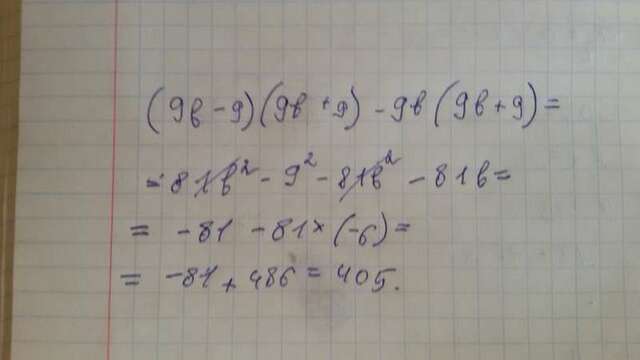 (9в - 9)(9в + 9) - 9в(9в + 9) =
= 81в² - 9² - 81в² - 81в =
= -81 - 81 × (-6) =
= -81 + 486 = 405.